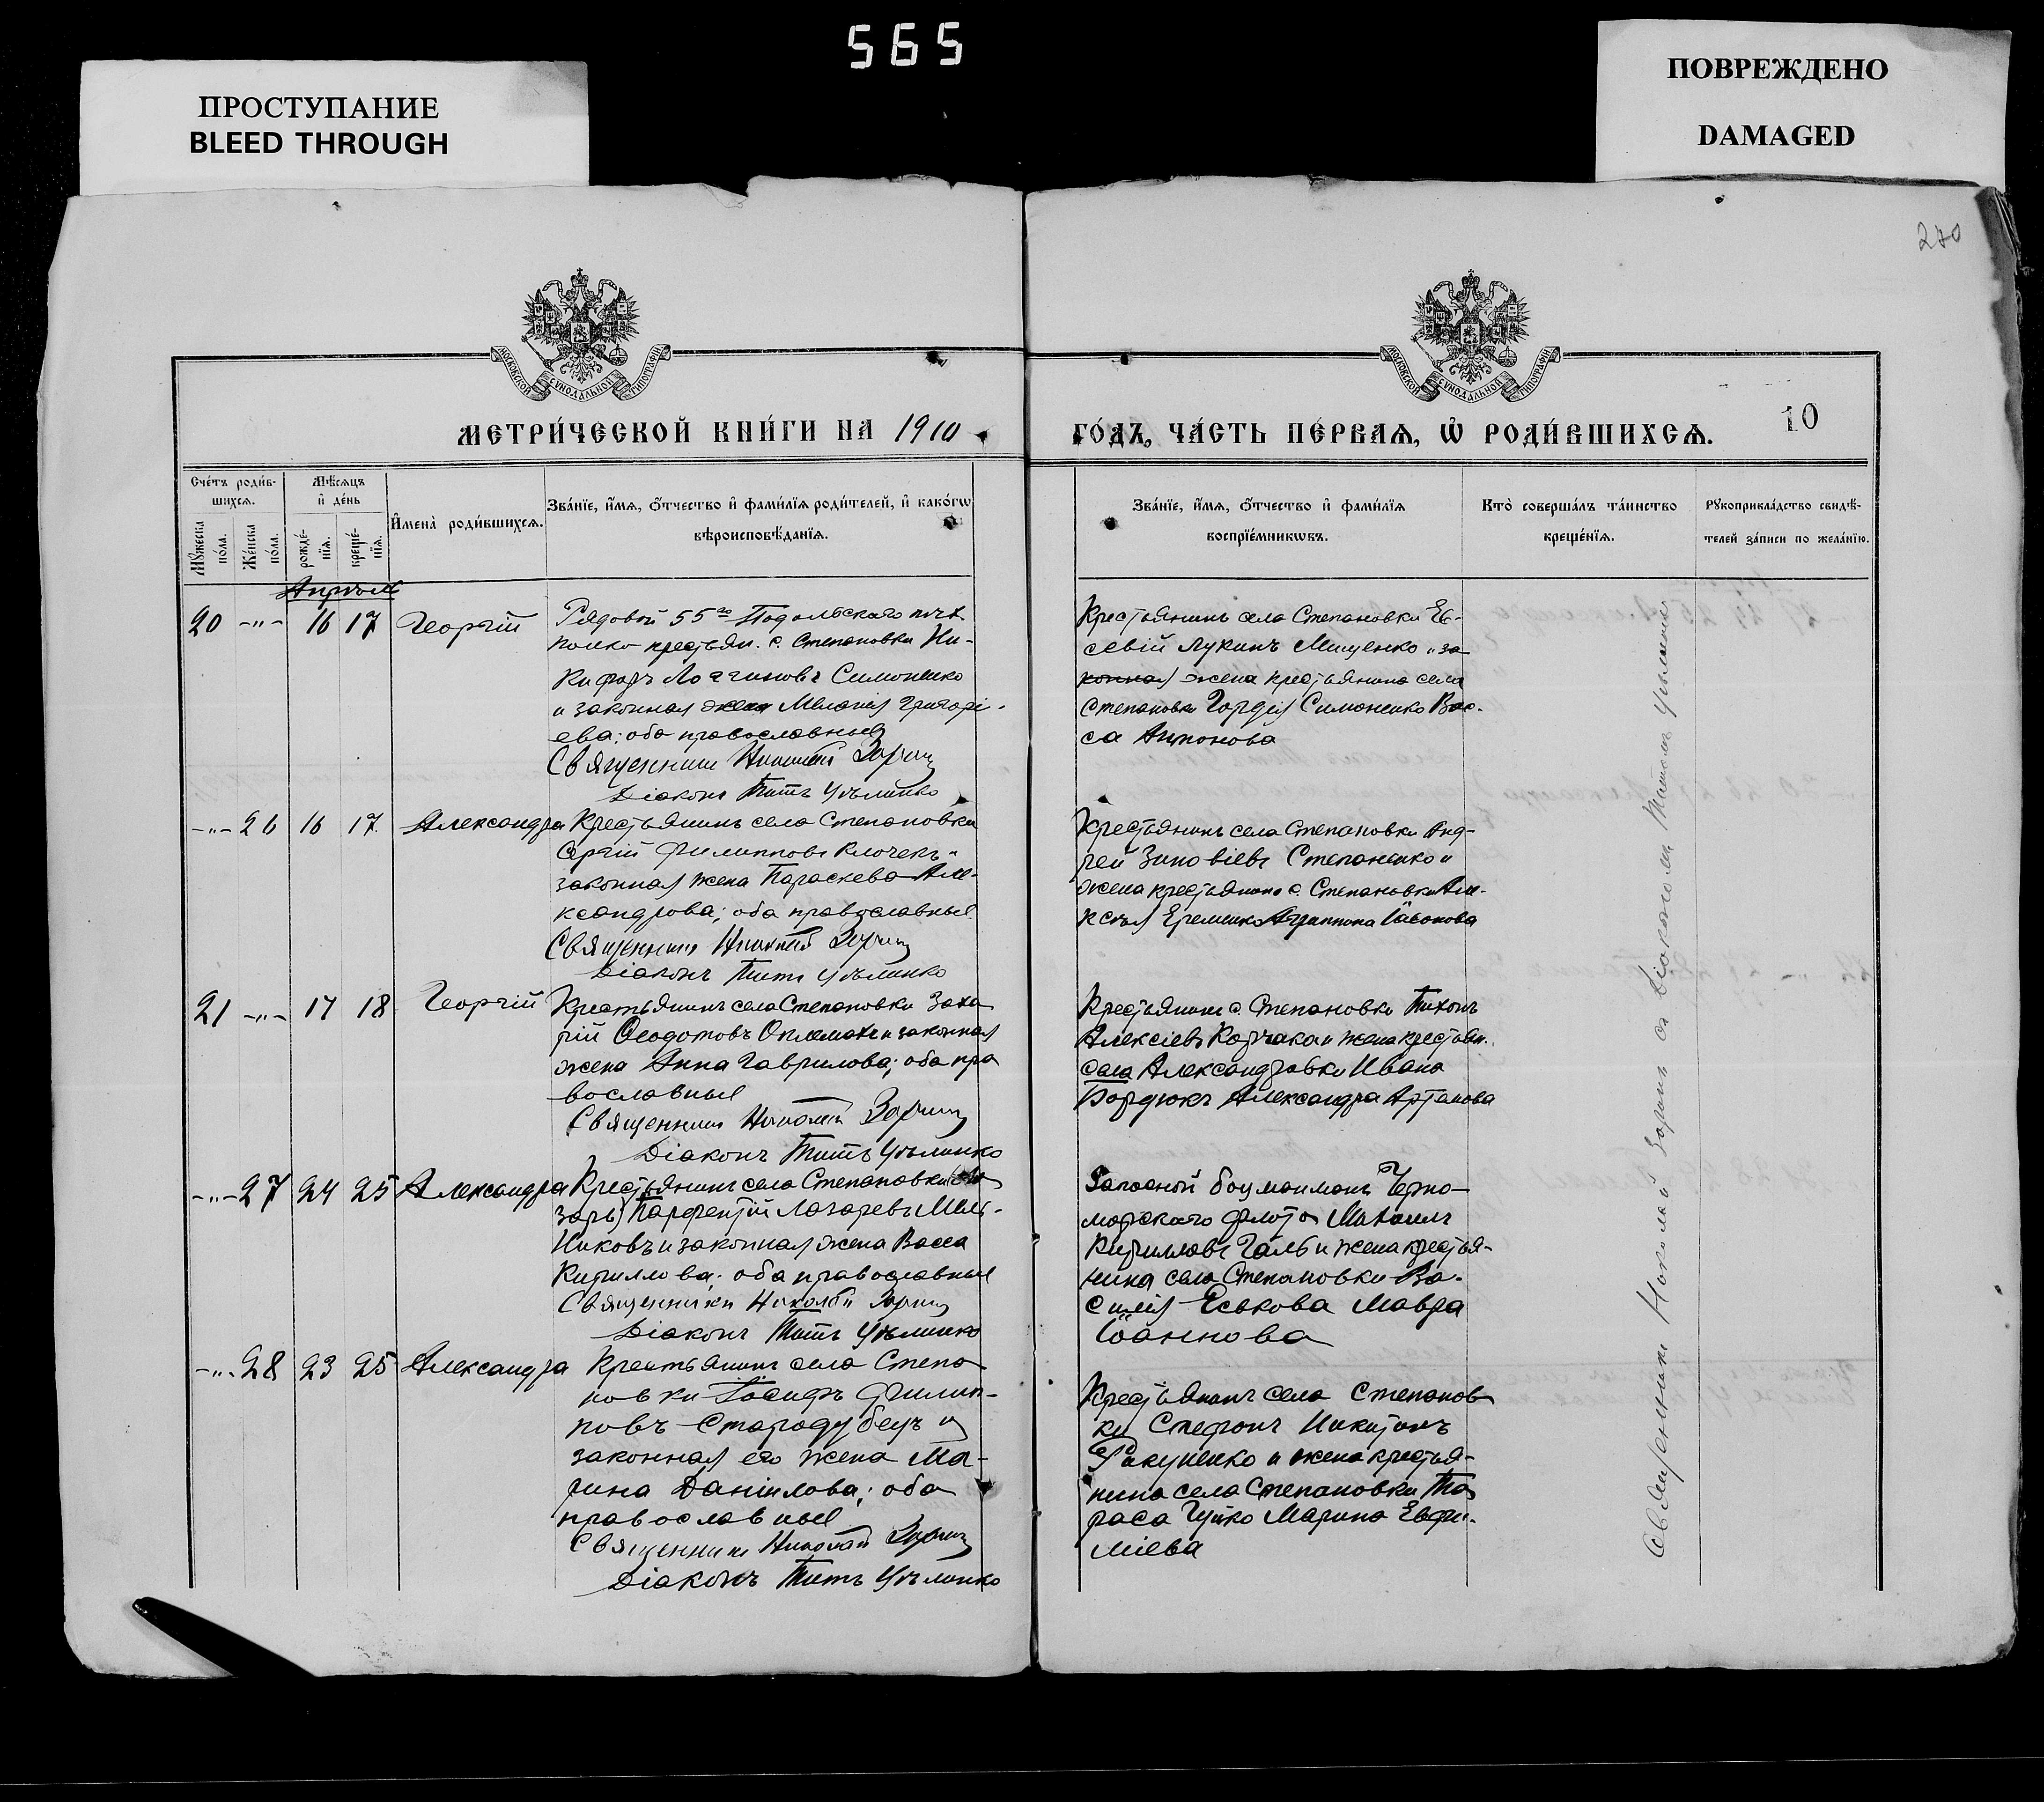 565
ПРОСТУПАНИЕ
BLEED THROUGH
ПОВРЕЖДЕНО
DAMAGED
280
МОСКОВСКОЙ СѴНОДАЛЬНОЙ ТИПОГРАФІИ
МОСКОВСКОЙ СѴНОДАЛЬНОЙ ТИПОГРАФІИ
МЕТРИ́ЧЕСКОЙ КНИ́ГИ НА 1910
ГО́ДЪ, ЧА́СТЬ ПЕ́РВАЯ, Ѡ РОДИ́ВШИХСЯ.
10
Сче́тъ роди́в-
шихся.
Мѣ́сяцъ
и де́нь
Мꙋ́жеска по́ла.
Же́нска по́ла.
рожде́-
нїя.
креще́-
нїя.
Имена̀ роди́вшихся.
Зва́нїе, и́мя, ѻ́тчество и фами́лїя роди́телей, и како́гѡ
вѣроисповѣ́данїя.
Зва́нїе, и́мя, ѻ́тчество и фами́лїя
воспрїе́мникѡвъ.
Кто̀ соверша́лъ та́инство
креще́нїя.
Рꙋкоприкла́дство свидѣ́-
телей за́писи по жела́нїю.
Апрѣль
20 -"- 16 17 Георгій
Рядовой 55го Подольскаго пѣх.
полка крестьян. с. Степановки Ни-
кифоръ Логгиновъ Симоненко
и законная жена Меланія Григорі-
ева; оба православные
Священникъ Николай Зоринъ
Діаконъ Титъ
Крестьянинъ села Степановки Ев-
севій Лукинъ Мищенко и за
конная жена крестьянина села
Степановки Гордія Симоненко Вас-
са Антонова
-"- 26 16 17 Александра
Крестьянинъ села Степановки
Сергій Филипповъ Клочекъ и
законная жена Параскева Але-
ксандрова; оба православные
Священникъ Николай Зоринъ
Діаконъ Титъ
Крестьянинъ села Степановки Анд-
рей Зиновіевъ Степаненко и
жена крестьянина с. Степановки Але-
ксѣя Еременко Агриппина Іасонова
21 -"- 17 18 Георгій
Крестьянинъ села Степановки Заха
рій Ѳеодотовъ и законная
жена Анна Гаврилова; оба пра
вославные
Священникъ Николай Зоринъ
Діаконъ Титъ
Крестьянинъ с. Степановки Тихонъ
Алексіевъ Корчака и жена крестьян.
села Александровки Ивана
Бордюкъ Александра Артамова
-"- 27 24 25 Александра
Крестьянинъ села Степановки (Ла
зарь) Парфентій Лазаревъ Мель-
никовъ и законная жена Васса
Кириллова; оба православные
Священникъ Николай Зоринъ
Діаконъ Титъ
Запасной боцманматъ Черно-
морскаго флота Михаилъ
Кирилловъ Галь и жена крестья-
нина села Степановки Ва-
силія Еськова Мавра
Іоаннова
-"- 28 23 25 Александра
Крестьянинъ села Степа
новки Іосифъ Филип-
повъ Стародубецъ и
законная его жена Ма-
рина Даніилова; оба
православные
Священникъ Николай Зоринъ
Діаконъ Титъ
Крестьянинъ села Степанов
ки Стефанъ Никитинъ
и жена крестья-
нина села Степановки Та
раса Гуйко Марина Евфи-
міева
Священникъ Николай Зоринъ съ діакономъ Титомъ